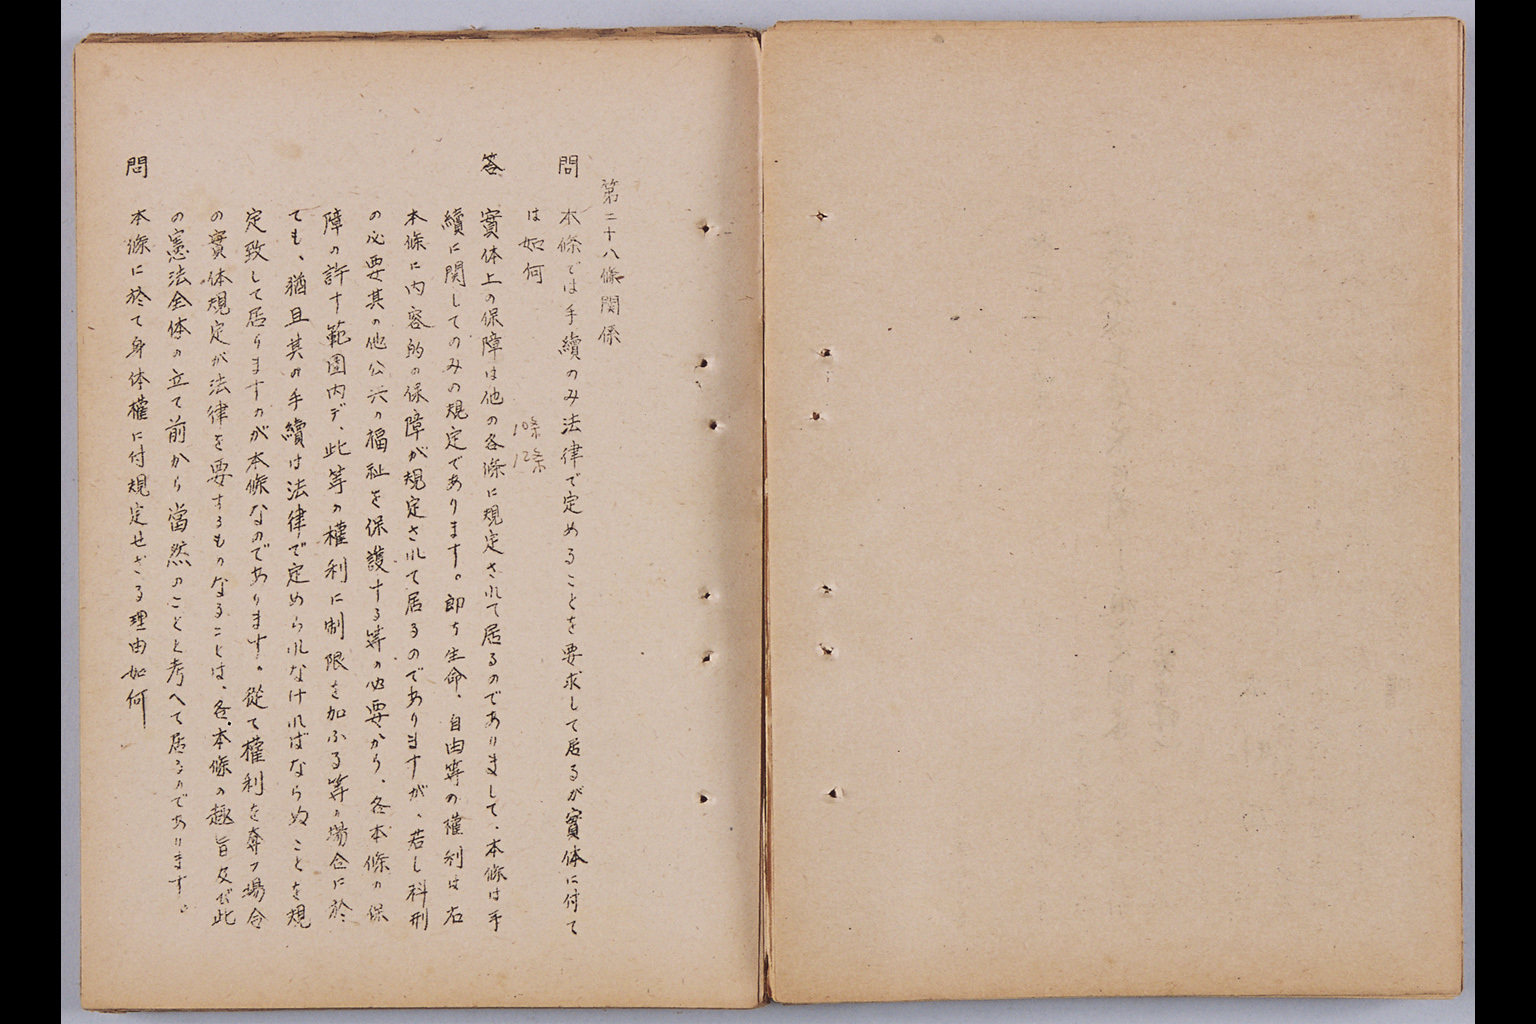 第二十八條関係
問 本條では手續のみ法律で定めることを要求して居るが實体に付て
は如何
10條
12条
答 實体上の保障は他の各條に規定されて居るのでありまして、本條は手
續に関してのみの規定であります。即ち生命、自由等の權利は右
本條に内容的の保障が規定されて居るのでありますが、若し科刑
の必要其の他公共の福祉を保護する等の必要から、各本條の保
障の許す範囲内デ、此等の權利に制限を加ふる等の場合に於
ても、猶且其の手續は法律で定められなければならぬことを規
定致して居りますのが本條なのであります。從て權利を奪フ場合
の實体規定が法律を要するものなることは、各本條の趣旨及び此
の憲法全体の立て前から當然のことと考へて居るのであります。
問 本條に於て身体權に付規定せざる理由如何